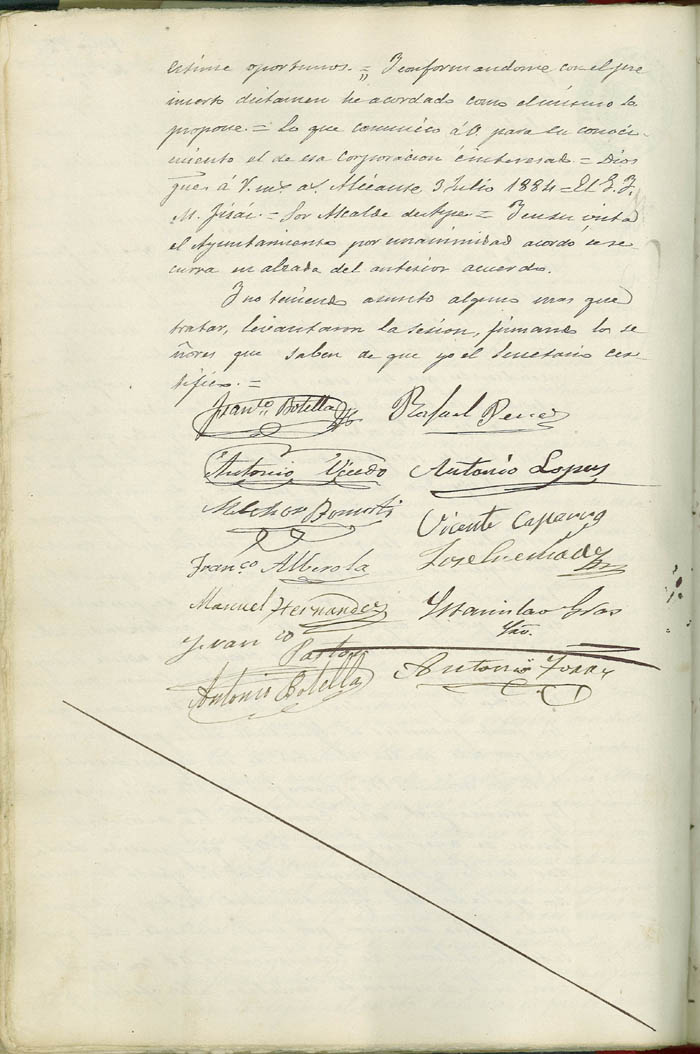 estime oportunos. = Y conformandome con el pre
inserto dictamen he acordado como el mismo lo
propone. = Lo que comunico á V. para su conoci-
miento el de esa Corporacion é interesado = Dios
gue. á V. ms. as. Alicante, 3 Julio 1884 = El G. I.
M. = Sor Alcalde de Aspe. = Y en su vista
el Ayuntamiento por unanimidad acordó se re-
curra en alzada del anterior acuerdo.
Y no teniendo asunto alguno mas que
tratar, levantaron la sesion, firmando los se-
ñores que saben de que yo el Secretario cer-
tifico. =
Franco. Botella Rafael Perez
Antonio Antonio Lopez
Melchor Vicente
Franco. Alberola Jose
Manuel Hernandez Estanislao
Franco Srio.
Pastor
Antonio Botella Antonio